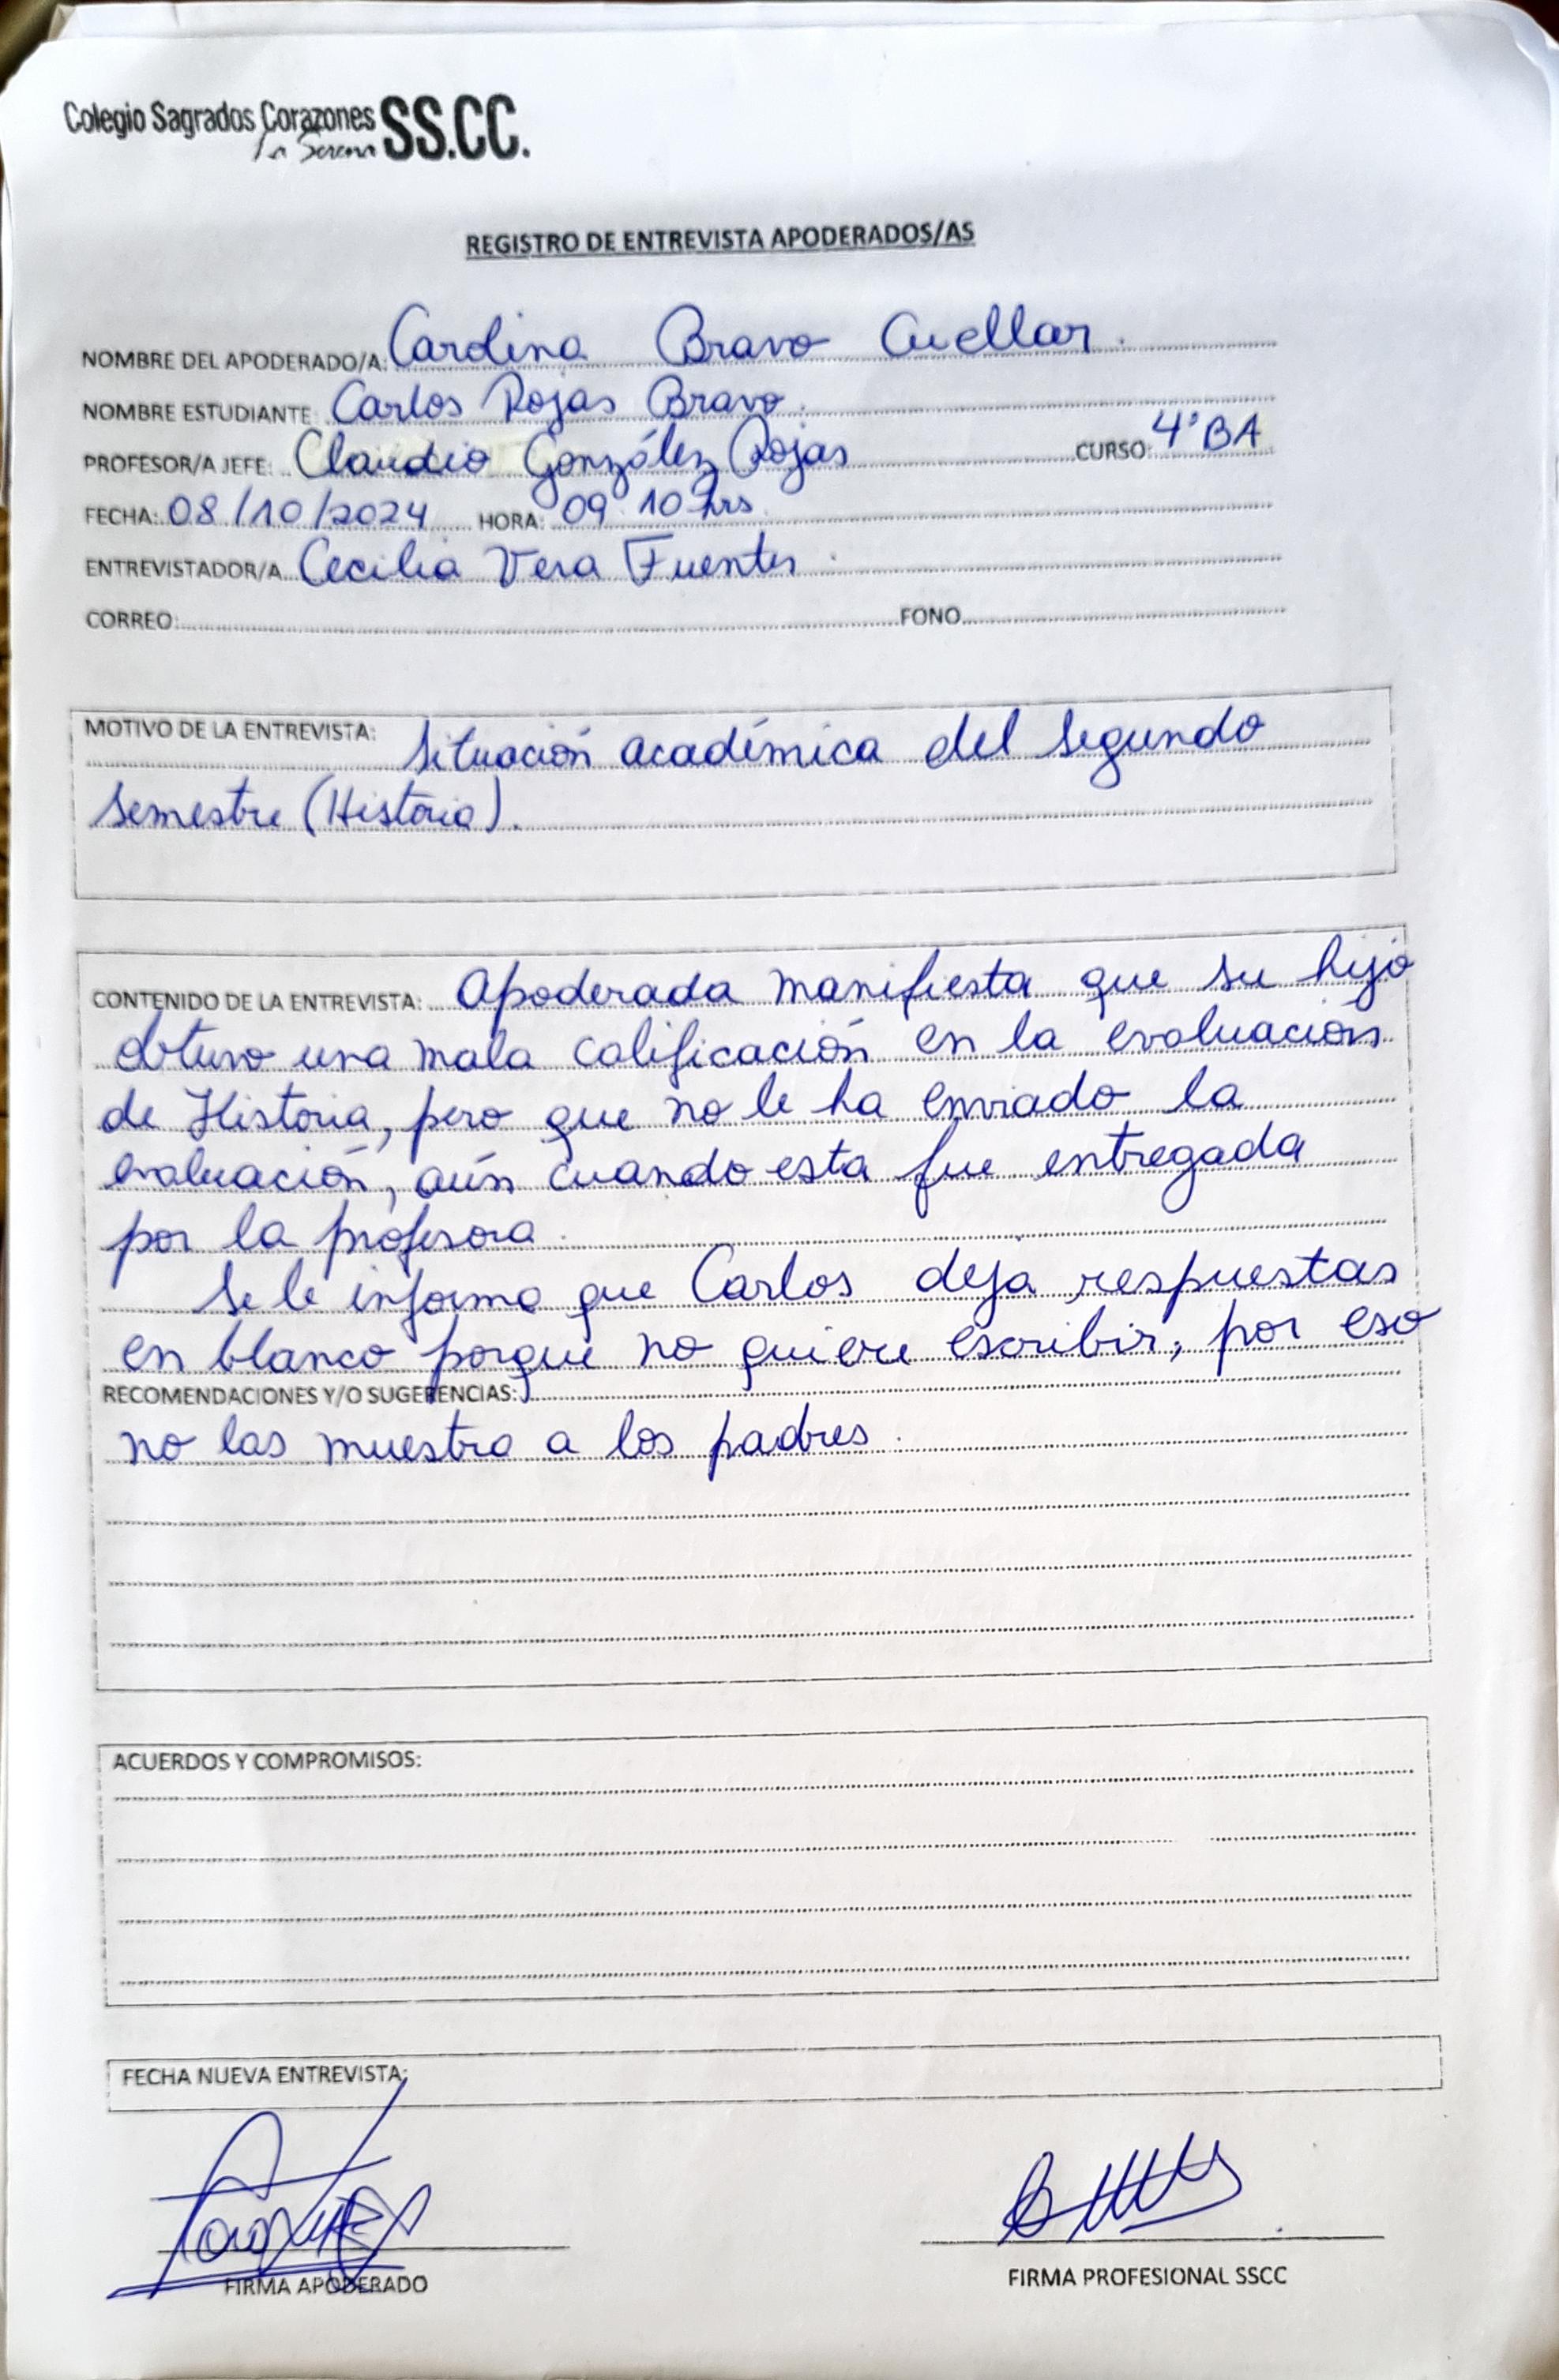 Colegio Sagrados Corazones SS.CC.
La Serena
REGISTRO DE ENTREVISTA APODERADOS/AS
NOMBRE DEL APODERADO/A: Carolina Bravo Cuellar.
NOMBRE ESTUDIANTE: Carlos Rojas Bravo.
PROFESOR/A JEFE: Claudio González Rojas CURSO: 4°BA
FECHA: 08/10/2024 HORA: 09:10 hrs
ENTREVISTADOR/A Cecilia Vera Fuentes.
CORREO: FONO
MOTIVO DE LA ENTREVISTA: Situación académica del segundo
semestre (Historia).
CONTENIDO DE LA ENTREVISTA: Apoderada manifiesta que su hijo
obtuvo una mala calificación en la evaluación
de Historia, pero que no le ha enviado la
evaluación, aún cuando esta fue entregada
por la profesora.
Se le informa que Carlos deja respuestas
en blanco porque no quiere escribir, por eso
RECOMENDACIONES Y/O SUGERENCIAS:
no las muestra a los padres.
ACUERDOS Y COMPROMISOS:
FECHA NUEVA ENTREVISTA:
FIRMA APODERADO
FIRMA PROFESIONAL SSCC